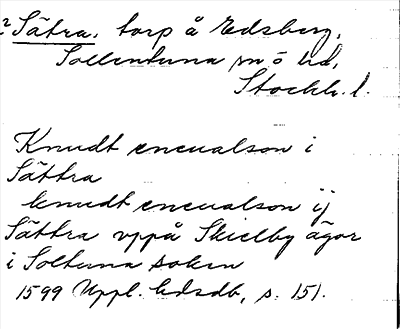 2 Sätra, torp å Edsberg,
Sollentuna sn o hd,
Stockh. l.
Knudt encualson i
Sättra
knudt encualson ij
Sättra vppå Skielby ägor
i Soltuna soken
1599 Uppl. hdsdb, s. 151.